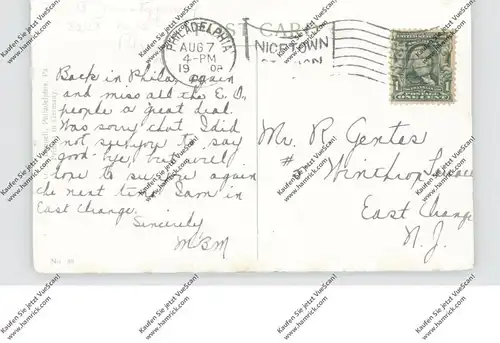 POST CARD
PHILADELPHIA
AUG 7
4-PM
19
NICETOWN
STATION
Back in Phila. again
and miss all the E. O.
people a great deal.
Was sorry that I did
not see you to say
good-bye, but will
hope to see you again
the next time I am in
East Orange.
Sincerely
M.B.M
Mr. R. Gentes
# Winthrop Terrace
East Orange
N. J.
Philadelphia, Pa
in Germany
No.
ONE CENT
Kaufen Sie jetzt VueScan!
www.hamrick.com